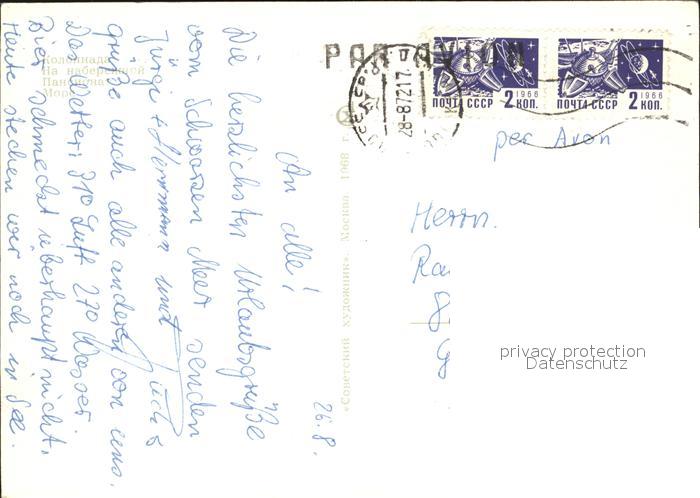 PAR AVION
ПОЧТА СССР 2 КОП. 1966
ПОЧТА СССР 2 КОП. 1966
28-8721
per Avon
Herrn.
Ra
privacy protection
Datenschutz
Колоннада
На набережной
Панорама
Море
«Советский художник». Москва 1968 г.
26.8.
An alle!
Die herzlichsten Urlaubsgrüße
vom Schwarzen Meer senden
Hermann und
grüße auch alle anderen von uns.
Das Wetter: 31° Luft 27° Wasser.
Bier schmeckt überhaupt nicht.
Heute stechen wir noch in See.